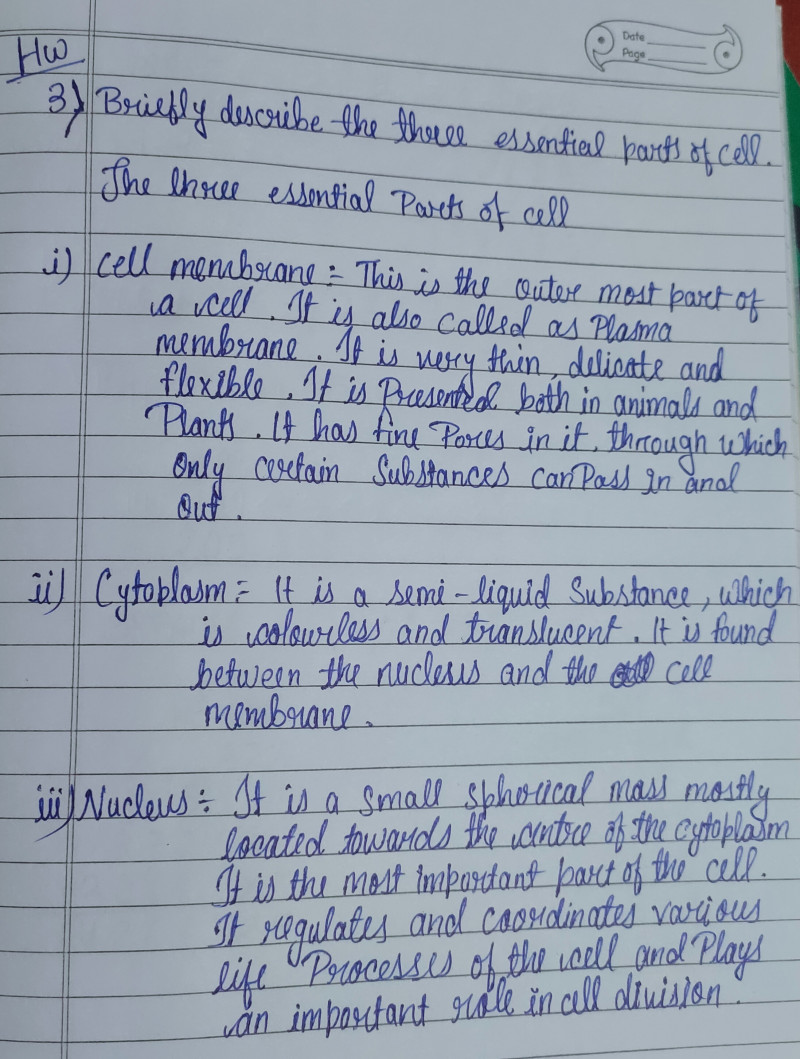 HW
Date
Page
3) Briefly describe the three essential parts of cell.
The three essential Parts of cell
i) Cell membrane :- This is the outer most part of
a cell. It is also called as Plasma
membrane. It is very thin, delicate and
flexible. It is Presented both in animals and
Plants. It has fine Pores in it, through which
only certain Substances can Pass in and
out.
ii) Cytoplasm :- It is a semi-liquid Substance, which
is colourless and translucent. It is found
between the nucleus and the cell
membrane.
iii) Nucleus :- It is a small spherical mass mostly
located towards the centre of the cytoplasm
It is the most important part of the cell.
It regulates and coordinates various
life Processes of the cell and Plays
an important role in cell division.